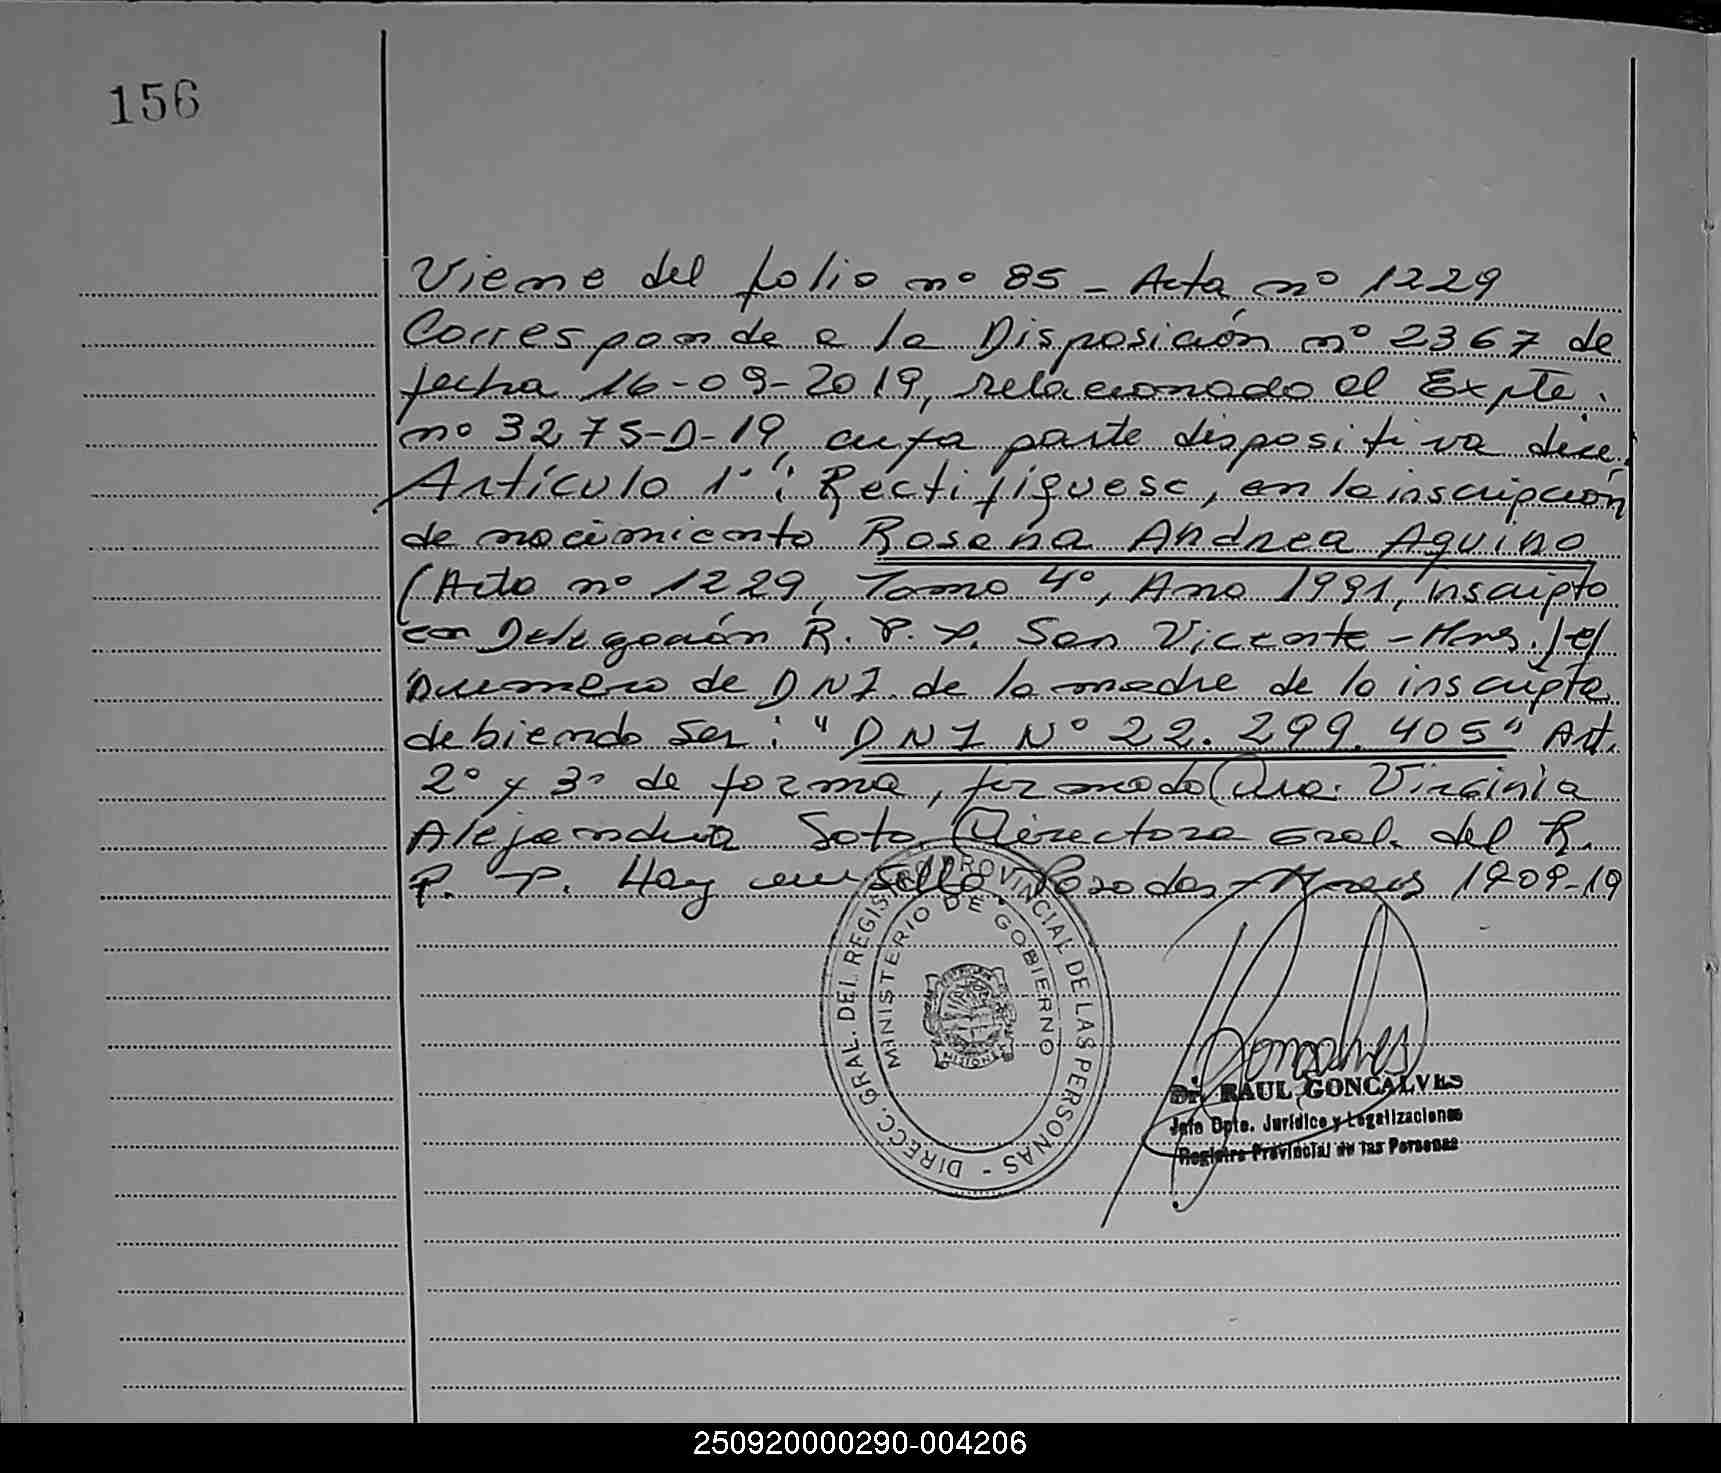 156
Viene del folio nº 85 - Acta nº 1229
Corresponde a la Disposición nº 2367 de
fecha 16-09-2019, relacionado al Expte.
nº 3275-D-19, cuya parte dispositiva dice,
Artículo 1º: Rectifiquese, en la inscripción
de nacimiento Rosana Andrea Aquino
(Acta nº 1229, Tomo 4º, Año 1991, inscripto
en Delegación R. P. P. San Vicente - Mnes.) el
número de DNI. de la madre de la inscripta
debiendo ser: "DNI Nº 22.299.405" Art.
2º y 3º de forma, firmado Dra. Virginia
Alejandra Soto Directora Gral. del R.
P. P. Hay un sello Posadas - Mnes 19-09-19
DIRECC. GRAL. DEL REGISTRO PROVINCIAL DE LAS PERSONAS -
MINISTERIO DE GOBIERNO
MISIONES
Goncalves
Dr. RAUL GONCALVES
Jefe Dpto. Jurídico y Legalizaciones
Registro Provincial de las Personas
250920000290-004206